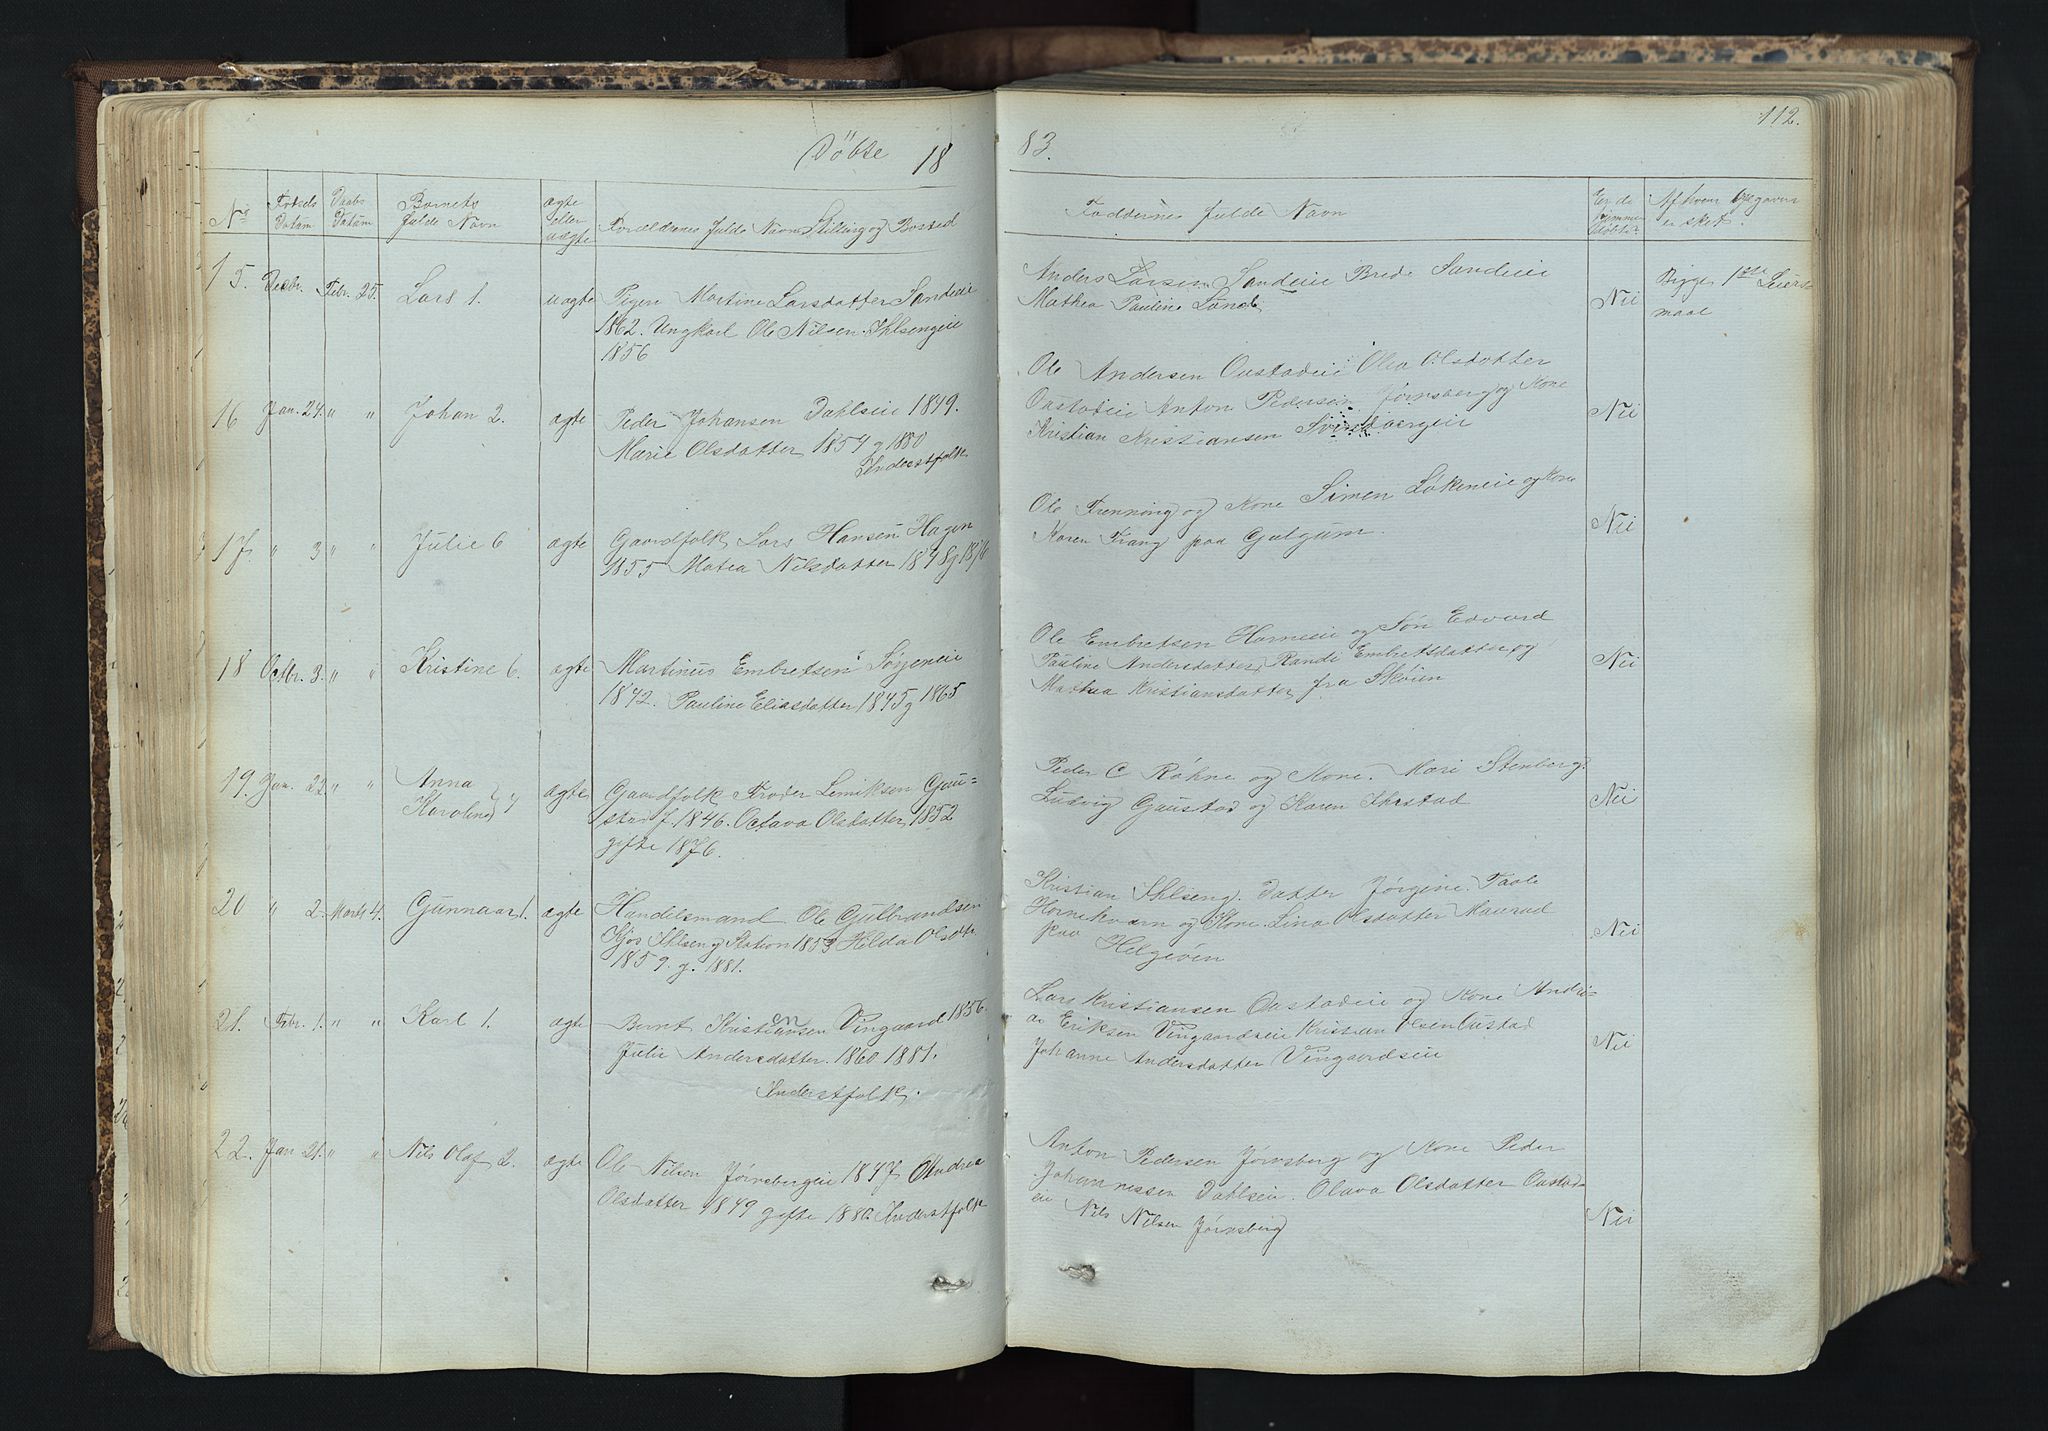 112.
Döbte 18
83.
No Fødsels Datum Daabs Datum Barnets fulde Navn ægte eller uægte Forældrenes fulde Navn Stilling og Bosted
Faddernes fulde Navn Er de vøbte Af hvem er sket
15. Decbr. Febr. 25. Lars 1. uægte Pigen Martine Larsdatter Sandeie
1862. Ungkarl Ole Nilsen Ihlsengeie
1856
Anders Larsen Sandeie Brede Sandeie
Mathea Pauline Lund
Nei
Begges 1ste Leiers
maal
16 Jan. 24. " " Johan 2. ægte Peder Johansen Dahlseie 1849.
Marie Olsdatter 1854 g 1880
Inderstfolk
Ole Andersen Oustadeie Olea Olsdatter
Oustadeie Anton Pedersen Jörnsberg og Kone
Kristian Kristiansen
Nei
17. " 3 " " Julie 6 ægte Gaardfolk Lars Hansen Hagen
1855 Matea Nilsdatter 1848 g 1876
Ole Frenning og Kone Simen Løkeneie og Kone
Karen Krang paa Galgum.
Nei
18 Octbr. 3. " " Kristine 6. ægte Martinus Embretsen Sørjeneie
1842. Pauline Eliasdatter 1845 g 1865
Ole Embretsen Horneseie og Søn Edvard
Pauline Andersdatter, Randi Embretsdatter og
Mathea Kristiansdatter fra Skøien
Nei
19. Jan. 22 " " Anna
Karoline ægte Gaardfolk Lemiksen Gau=
stad f. 1846. Octava Olsdatter 1852
gifte 1876.
Peder C Røhne og Kone. Mari Stenberg.
Ludvig Gaustad og Karen Ihlestad
Nei
20 " 2. Marts 4. Gunnaar 1. ægte Handelsmand Ole Gulbrandsen
Kjos Ihlseng Station 1853 Hilda Olsdtr
1859. g. 1881.
Kristian Ihlseng. Datter Jørgine. Taale
Hornekværn og Kone. Lina Olsdatter Maurud
paa Helgeöen
Nei
21. Febr. 1. " " Karl 1. ægte Bernt Kristiansen Vingaard 1856.
Julie Andersdatter. 1860. 1881.
Inderstfolk.
Lars Kristiansen Oustadeie og Kone Andre-
as Eriksen Vingaardseie Kristian Olsen Oustad
Johanne Andersdatter Vingaardseie
Nei
22. Jan 21. " " Nils Olaf 2. ægte Ole Nilsen Jörnsbergeie 1847 Andrea
Olsdatter 1849 gifte 1880. Inderstfolk
Anton Pedersen Jörnsberg og Kone Peder
Johannessen Dahlseie. Olava Olsdatter Oustad-
eie Nils Nilsen Jörnsberg
Nei